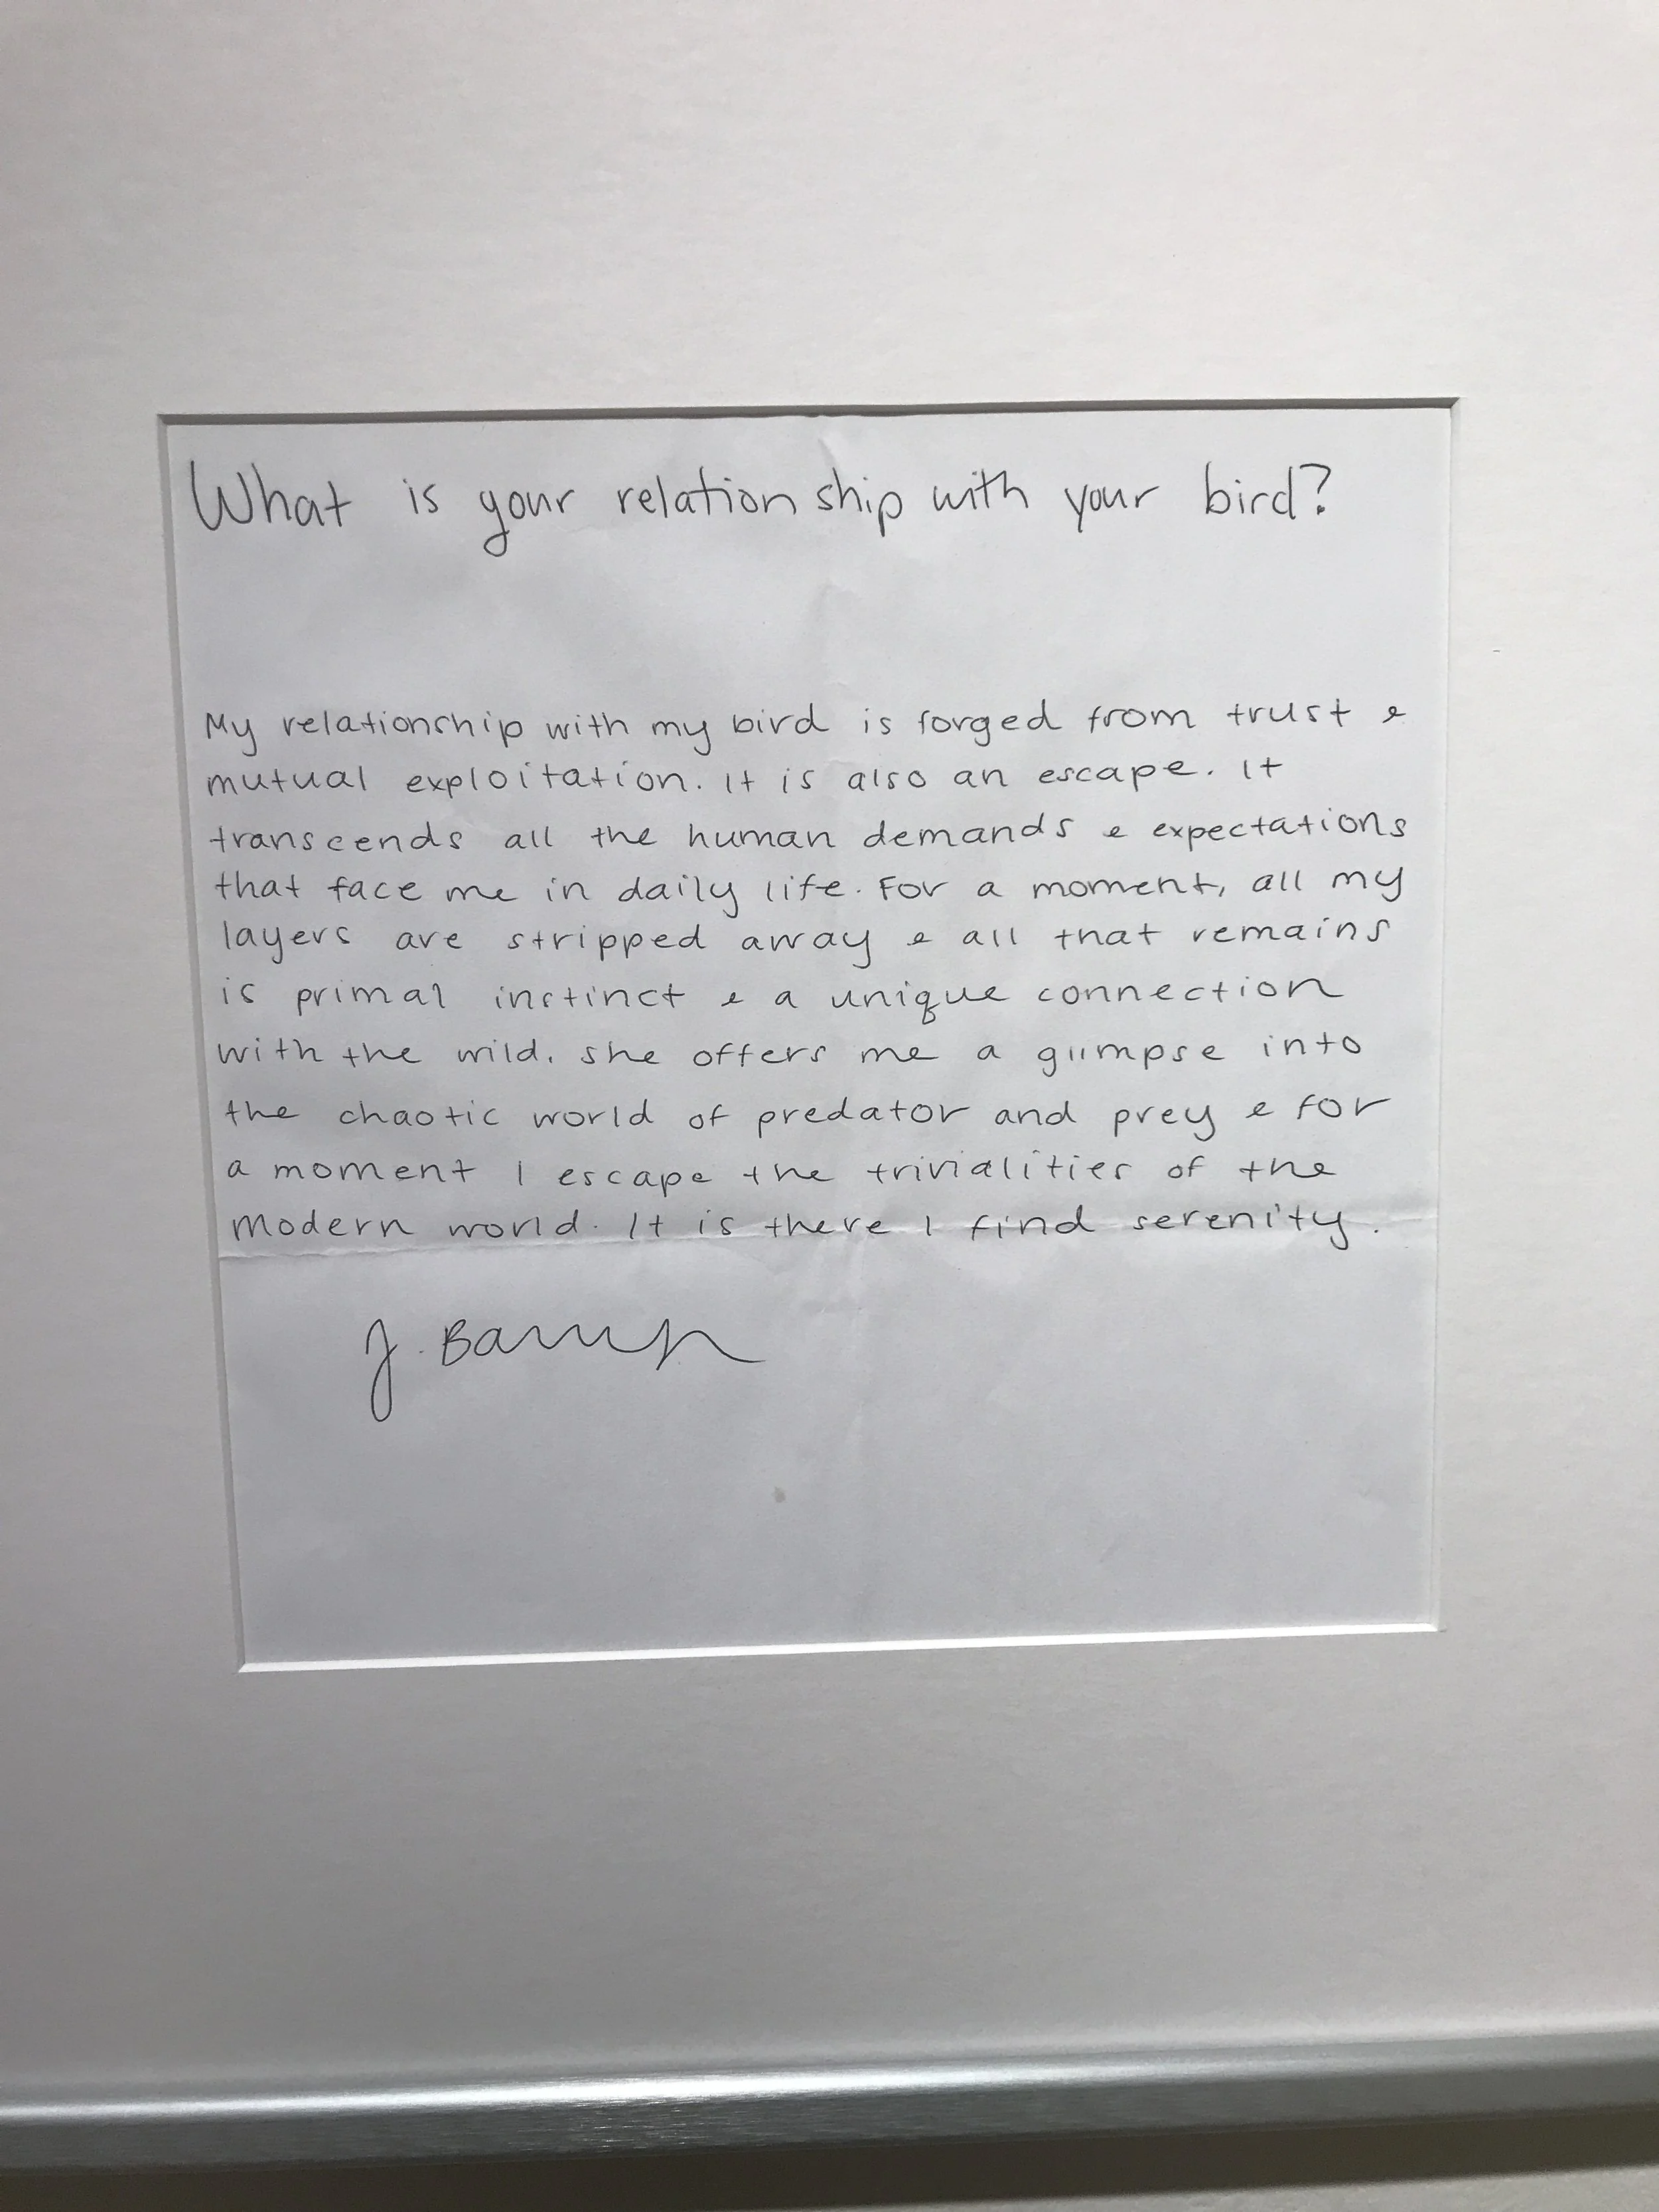 What is your relationship with your bird?
My relationship with my bird is forged from trust &
mutual exploitation. It is also an escape. It
transcends all the human demands & expectations
that face me in daily life. For a moment, all my
layers are stripped away & all that remains
is primal instinct & a unique connection
with the wild. She offers me a glimpse into
the chaotic world of predator and prey & for
a moment I escape the trivialities of the
modern world. It is there I find serenity.
J.